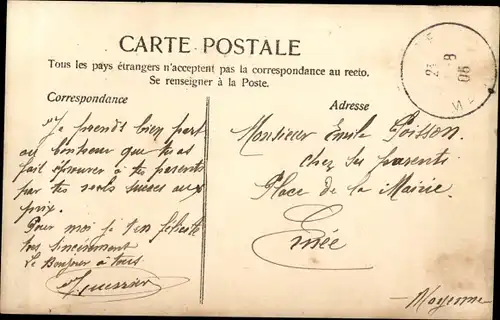 CARTE POSTALE
Tous les pays étrangers n'acceptent pas la correspondance au recto.
Se renseigner à la Poste.
Correspondance
Je prends bien part
au bonheur que tu as
fait éprouver à tes parents
par tes succes aux
prix.
Pour moi je t'en félicite
tres sincerement
Le Bonjour à tous.
Adresse
Monsieur Emile Poisson.
chez ses parents
Place de la Mairie.
Ernée
Mayenne
8
06